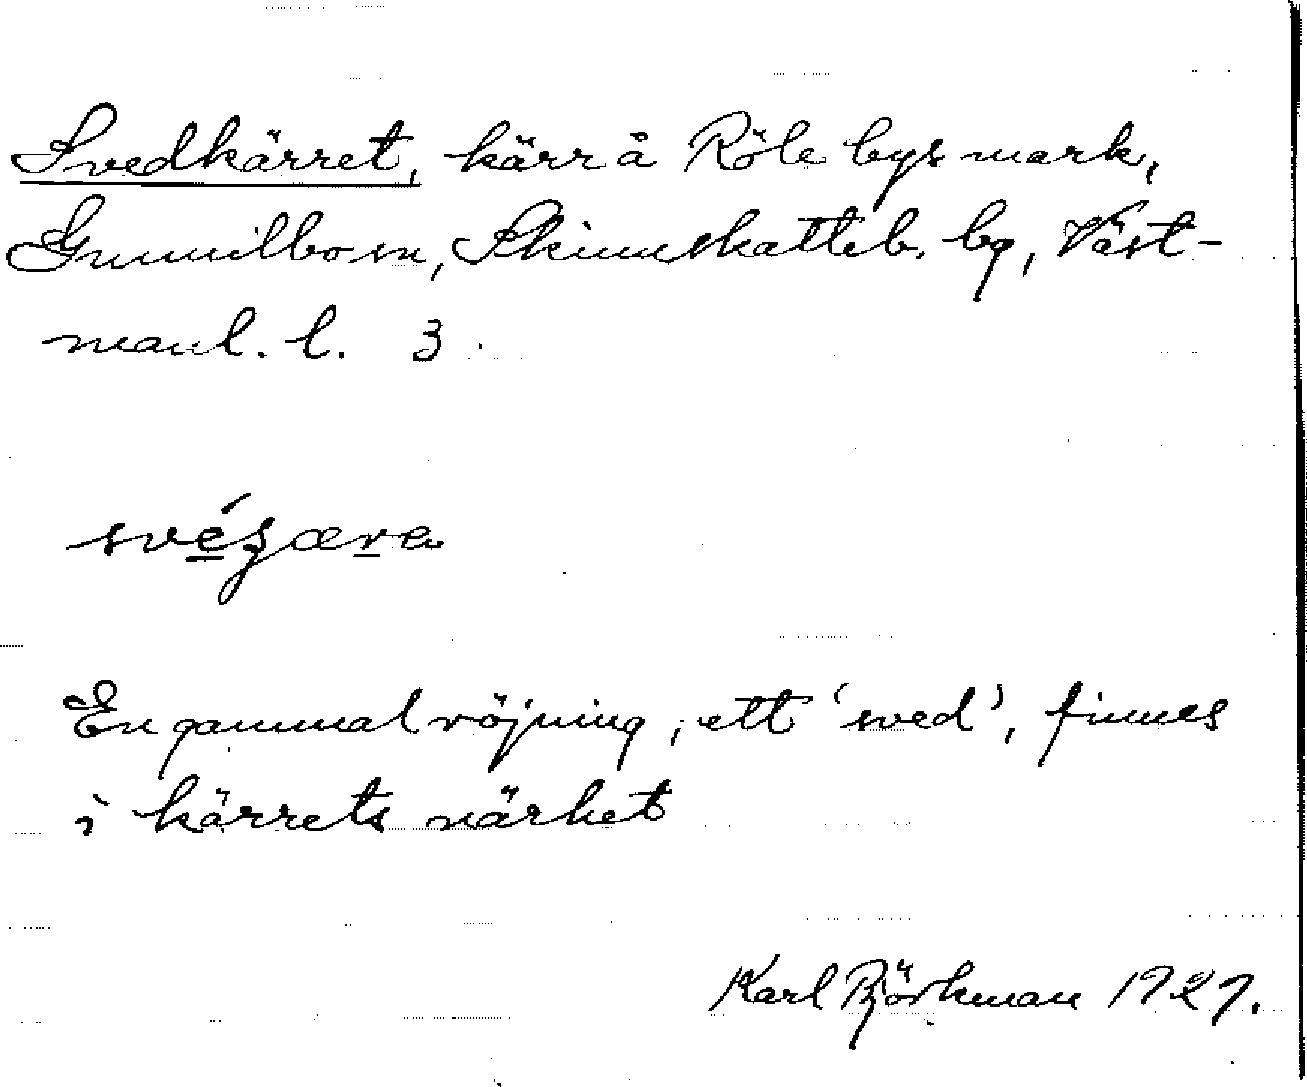 Svedkärret, kärr å Röle bys mark,
Gunnilbo sn, Skinnskatteb. bg, Väst-
manl. l. 3.
En gammal röjning, ett 'sved', finnes
i kärrets närhet
Karl Björkman 1927.